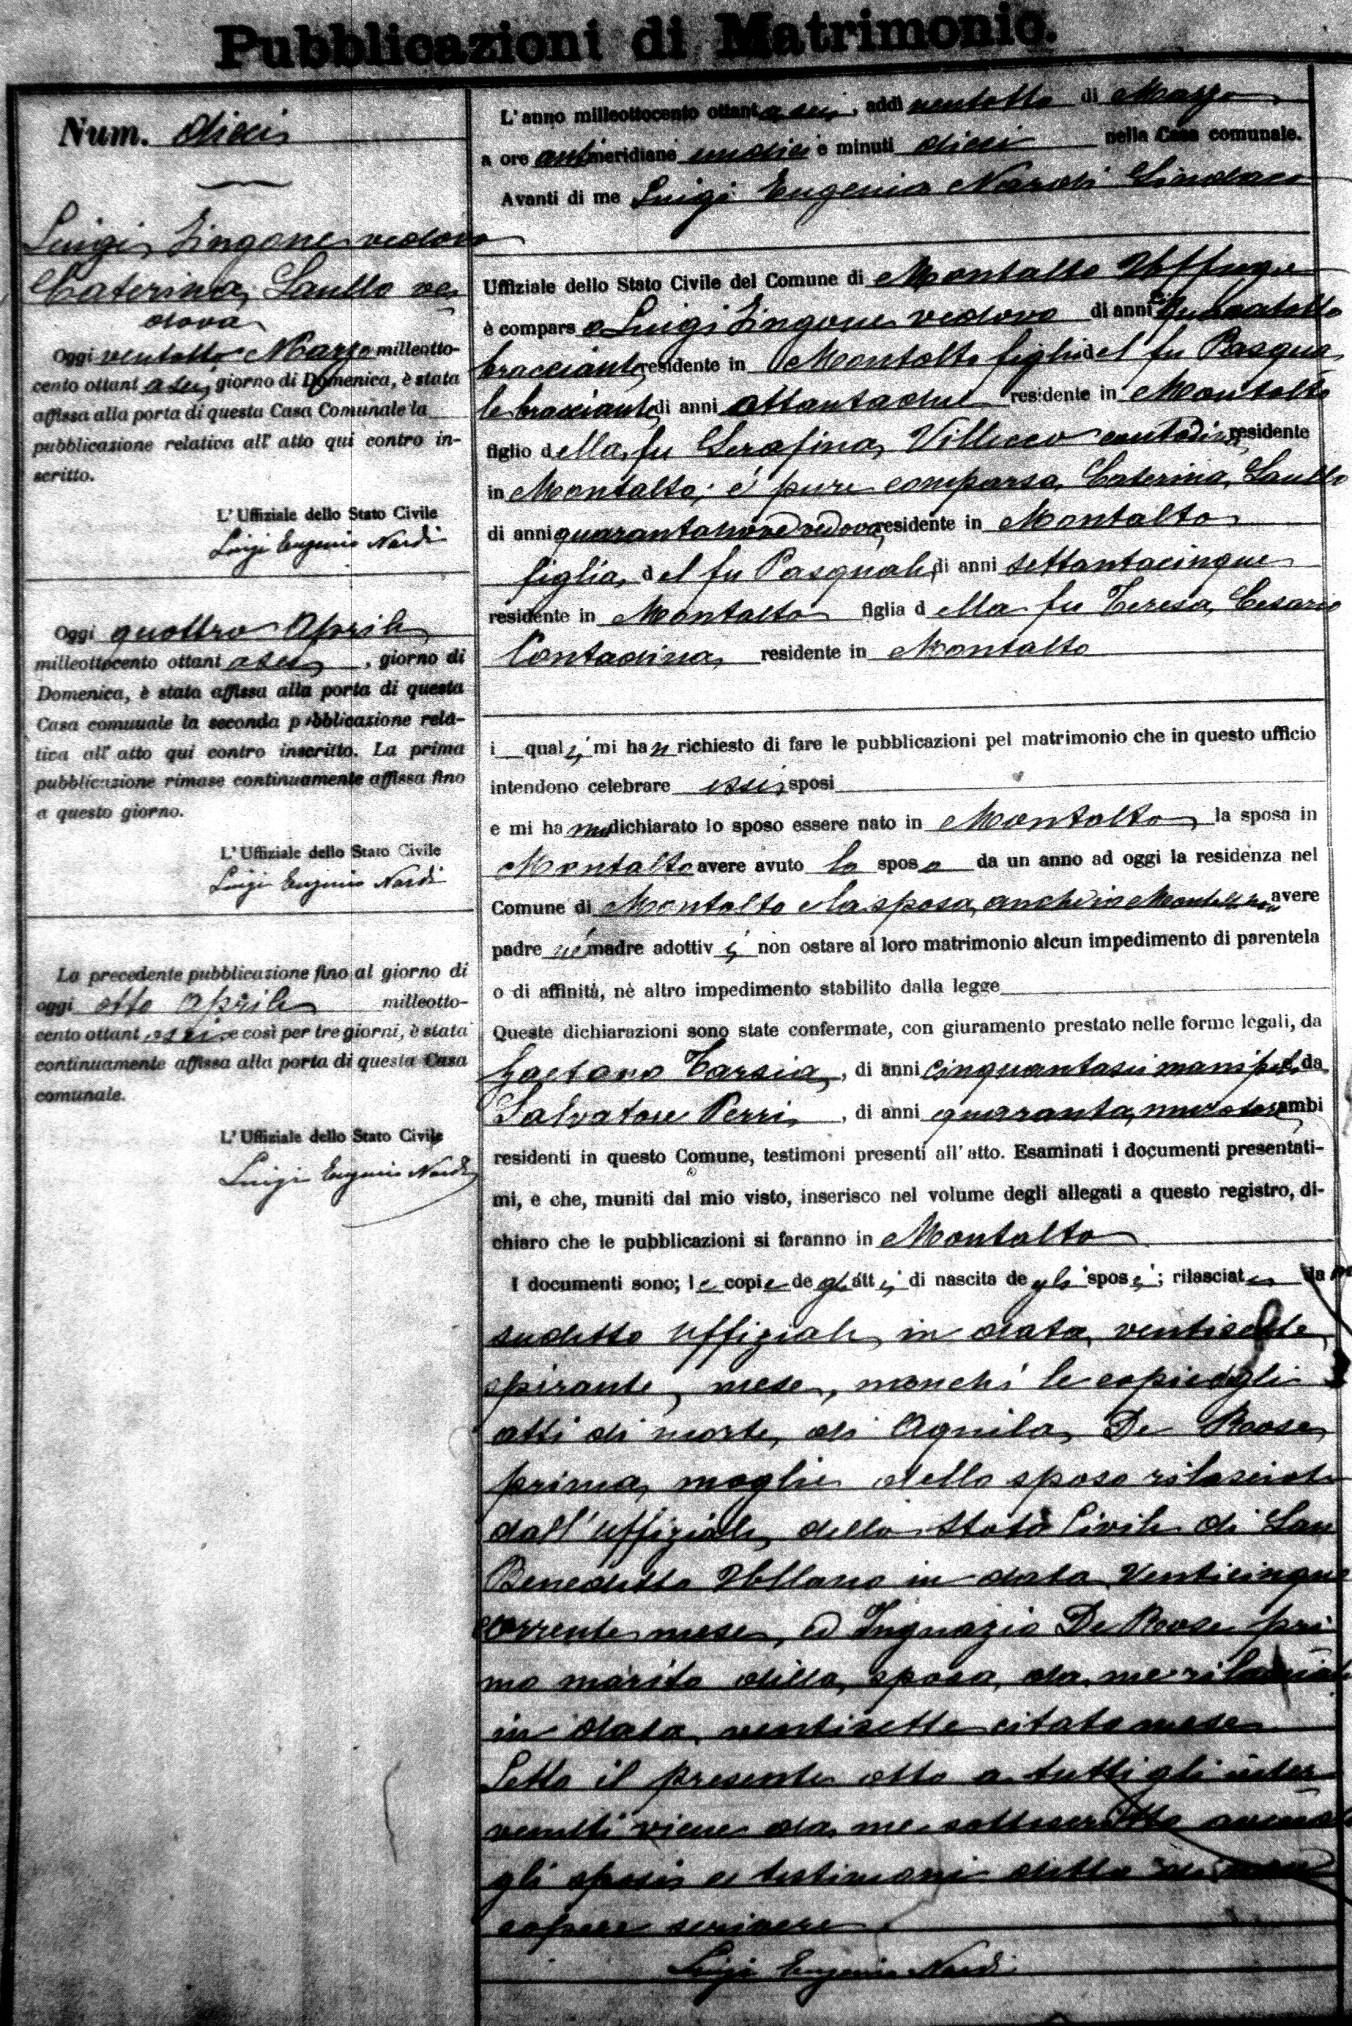 Pubblicazioni di Matrimonio.
Num. dieci
Luigi Zingone vedovo
Caterina Saullo ve-
dova
Oggi ventotto Marzo milleotto-
cento ottantasei, giorno di Domenica, è stata
affissa alla porta di questa Casa Comunale la
pubblicazione relativa all' atto qui contro in-
scritto.
L' Uffiziale dello Stato Civile
Luigi Eugenio Nardi
Oggi quattro Aprile
milleottocento ottantasei, giorno di
Domenica, è stata affissa alla porta di questa
Casa comunale la seconda pubblicazione rela-
tiva all' atto qui contro inscritto. La prima
pubblicazione rimase continuamente affissa fino
a questo giorno.
L' Uffiziale dello Stato Civile
Luigi Eugenio Nardi
La precedente pubblicazione fino al giorno di
oggi otto Aprile milleotto-
cento ottantasei e così per tre giorni, è stata
continuamente affissa alla porta di questa Casa
comunale.
L' Uffiziale dello Stato Civile
Luigi Eugenio Nardi
L' anno milleottocento ottantasei, addì ventotto di Marzo
a ore antimeridiane undici e minuti dieci nella Casa comunale.
Avanti di me Luigi Eugenio Nardi Sindaco
Uffiziale dello Stato Civile del Comune di Montalto Uffugo
è comparso Luigi Zingone vedovo di anni
bracciante residente in Montalto figlio del fu Pasqua-
le bracciante di anni ottantadue residente in Montalto
figlio della fu Serafina Villecco contadina residente
in Montalto; é pure comparsa Caterina Saullo
di anni quarantanove vedova residente in Montalto
figlia del fu Pasquale di anni settantacinque
residente in Montalto figlia della fu Teresa Cesario
Contadina residente in Montalto
i quali mi han richiesto di fare le pubblicazioni pel matrimonio che in questo ufficio
intendono celebrare essi sposi
e mi hanno dichiarato lo sposo essere nato in Montalto, la sposa in
Montalto avere avuto lo sposo da un anno ad oggi la residenza nel
Comune di Montalto e la sposa anche in Montalto non avere
padre né madre adottivi, non ostare al loro matrimonio alcun impedimento di parentela
o di affinità, nè altro impedimento stabilito dalla legge
Queste dichiarazioni sono state confermate, con giuramento prestato nelle forme legali, da
Gaetano Tarsia, di anni cinquantasei da
Salvatore Perri, di anni quaranta, muratore ambi
residenti in questo Comune, testimoni presenti all' atto. Esaminati i documenti presentati-
mi, e che, muniti dal mio visto, inserisco nel volume degli allegati a questo registro, di-
chiaro che le pubblicazioni si faranno in Montalto
I documenti sono; le copie degli atti di nascita degli sposi; rilasciate da me
suddetto uffiziale in data ventisette
spirante mese, nonché le copie degli
atti di morte di Aquila De Rose
prima moglie dello sposo rilasciato
dall' uffiziale dello Stato Civile di San
Benedetto Ullano in data Venticinque
corrente mese, ed Ingnazio De Rose pri-
mo marito della sposa da me rilasciato
in data ventisette citato mese.
Letto il presente atto a tutti gli inter-
venuti viene da me sottoscritto avendo
gli sposi e testimoni detto di non
sapere scrivere
Luigi Eugenio Nardi